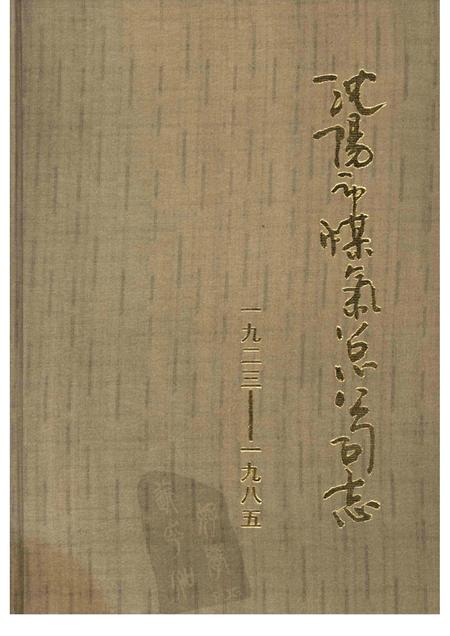 沈陽市煤氣总公司志
一九二三——一九八五